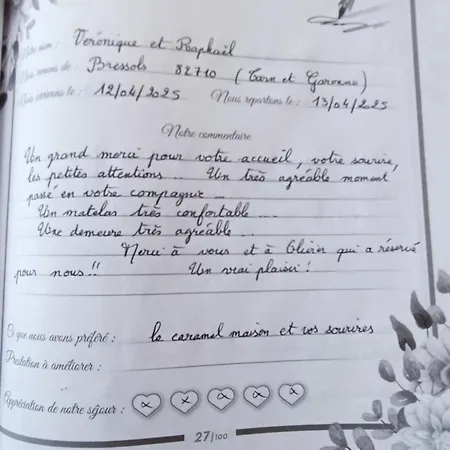 Votre nom : Véronique et Raphaël
Nous venons de : Bressols 82710 (Tarn et Garonne)
Nous arrivons le : 12/04/2025 Nous repartons le : 13/04/2025
Notre commentaire
Un grand merci pour votre accueil, votre sourire,
les petites attentions... Un très agréable moment
passé en votre compagnie...
Un matelas très confortable...
Une demeure très agréable...
Merci à vous et à Olivier qui a réservé
pour nous!! Un vrai plaisir!
Ce que nous avons préféré : le caramel maison et vos sourires
Prestation à améliorer :
Appréciation de notre séjour : x x x x x
27/100